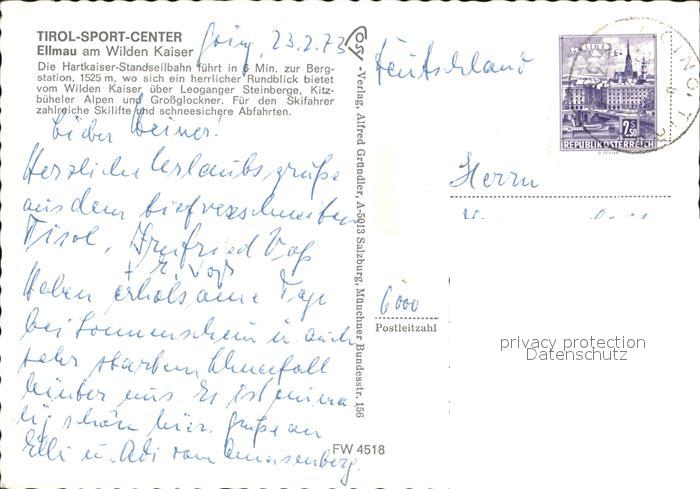 TIROL-SPORT-CENTER
Ellmau am Wilden Kaiser
Die Hartkaiser-Standseilbahn führt in 6 Min. zur Berg-
station, 1525 m, wo sich ein herrlicher Rundblick bietet
vom Wilden Kaiser über Leoganger Steinberge, Kitz-
büheler Alpen und Großglockner. Für den Skifahrer
zahlreiche Skilifte und schneesichere Abfahrten.
Going, 23.2.73
Lieber Heiner!
Herzliche Urlaubsgrüße
aus dem tiefverschneiten
Tirol,
Haben erholsame Tage
bei Sonnenschein u. auch
sehr starken Schneefall
hinter uns. Es ist
schön hier. Grüße an
Elli u. Adi vom
-Verlag, Alfred Gründler, A-5013 Salzburg, Münchner Bundesstr. 156
Deutschland
LINZ
2 S 50
REPUBLIK ÖSTERREICH
Herrn
6000
Postleitzahl
privacy protection
Datenschutz
FW 4518